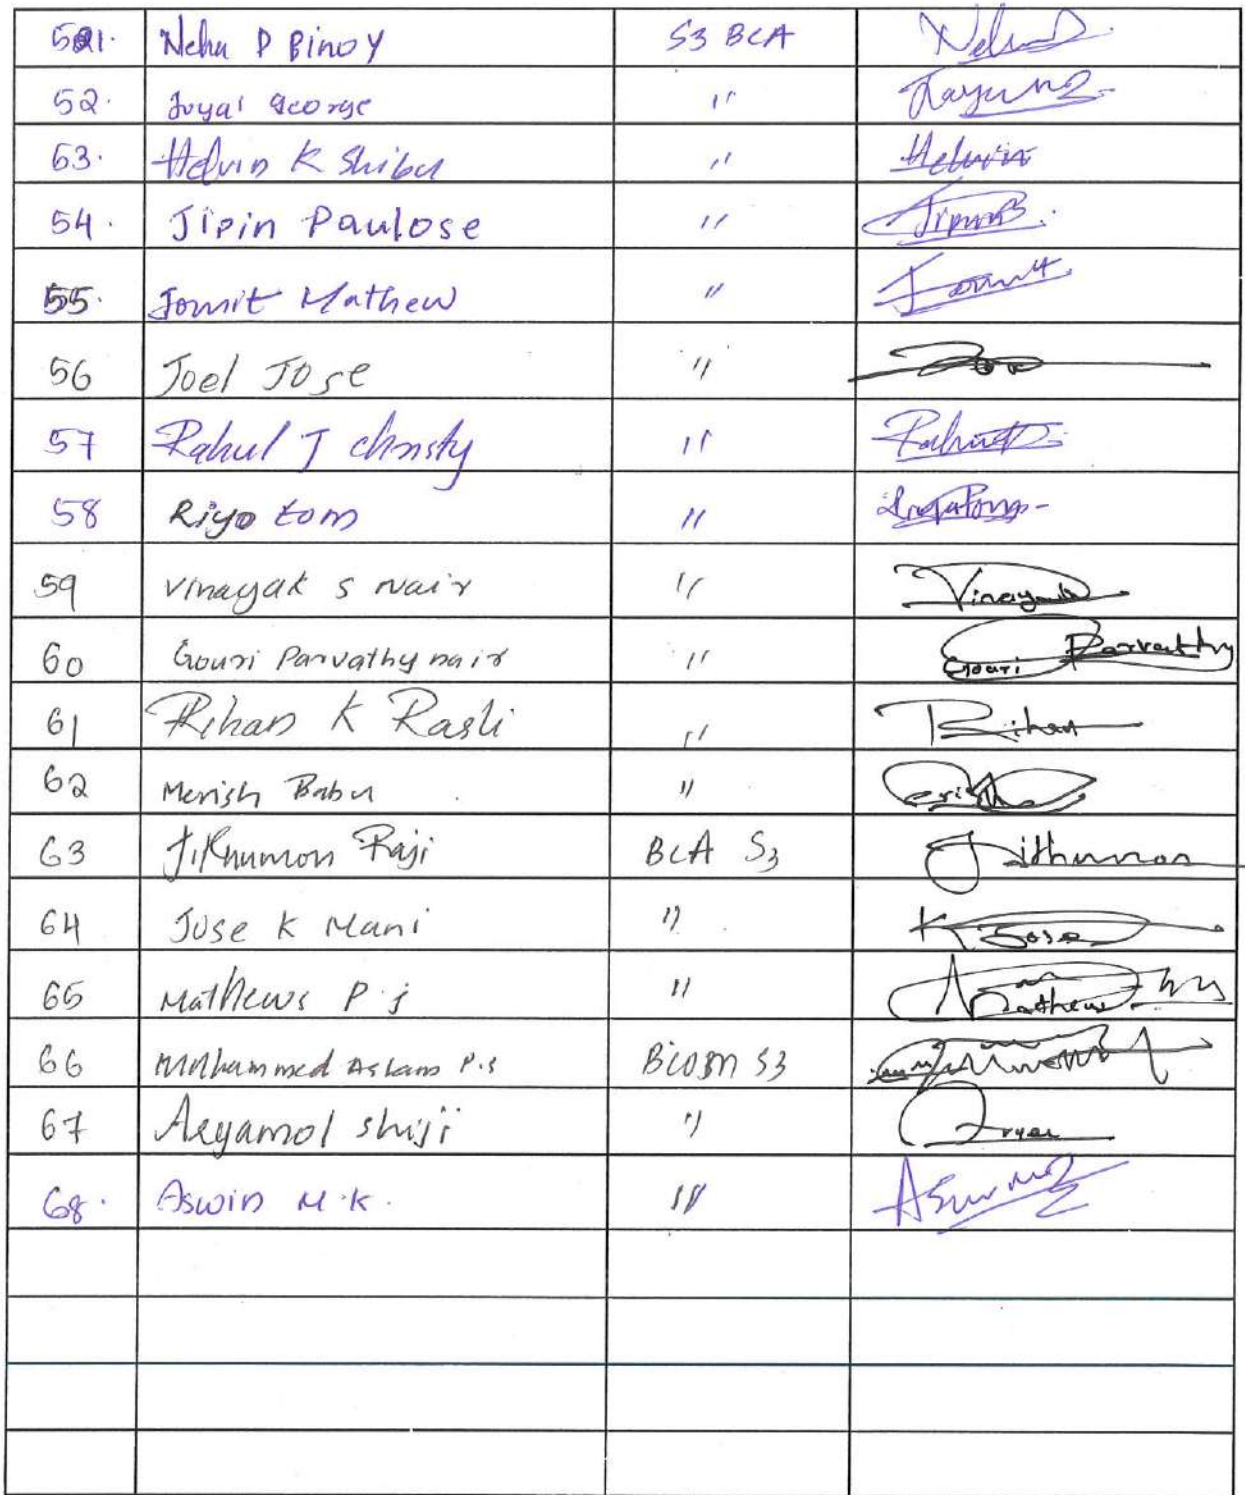 51. Neha P Binoy S3 BCA Neha
52. Joyal George "
53. Helvin K Shibu " Helvin
54. Jipin Paulose " Jipin
55. Jomit Mathew " Jomit
56 Joel Jose "
57 Rahul J Christy " Rahul
58 Riyo tom "
59 Vinayak S Nair " Vinayak
60 Gouri Parvathy nair " Gouri Parvathy
61 Rihan K Rasli " Rihan
62 Merish Babu "
63 Jithumon Raji BCA S3 Jithumon
64 Jose K Mani " K Jose
65 Mathews P.J " Mathews
66 Muhammed Aslam P.S Bcom S3
67 Aryamol Shiji " Arya
68. Aswin M.K. " Aswin